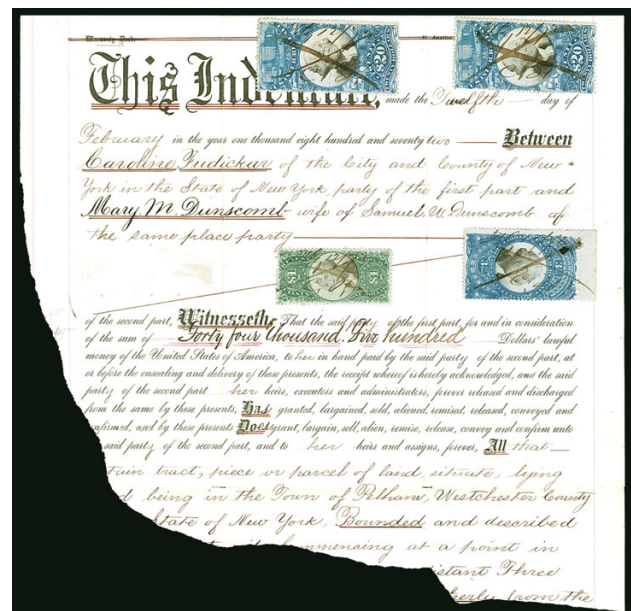 Warranty Deed.
This Indenture, made the Twelfth day of
February in the year one thousand eight hundred and seventy two Between
Caroline Fudickar of the City and County of New
York in the State of New York, party of the first part and
Mary M. Dunscomb wife of Samuel W. Dunscomb of
the same place party
of the second part, Witnesseth, That the said party of the first part, for and in consideration
of the sum of Forty four thousand Five hundred Dollars lawful
money of the United States of America, to her in hand paid by the said party of the second part, at
or before the ensealing and delivery of these presents, the receipt whereof is hereby acknowledged, and the said
party of the second part her heirs, executors and administrators, forever released and discharged
from the same by these presents, Has granted, bargained, sold, aliened, remised, released, conveyed and
onfirmed, and by these presents Does grant, bargain, sell, alien, remise, release, convey and confirm unto
said party of the second part, and to her heirs and assigns, forever, All that
tain tract, piece or parcel of land, situate, lying
d being in the Town of Pelham, Westchester County
State of New York, Bounded and described
commencing at a point in
istant Three
herly from the